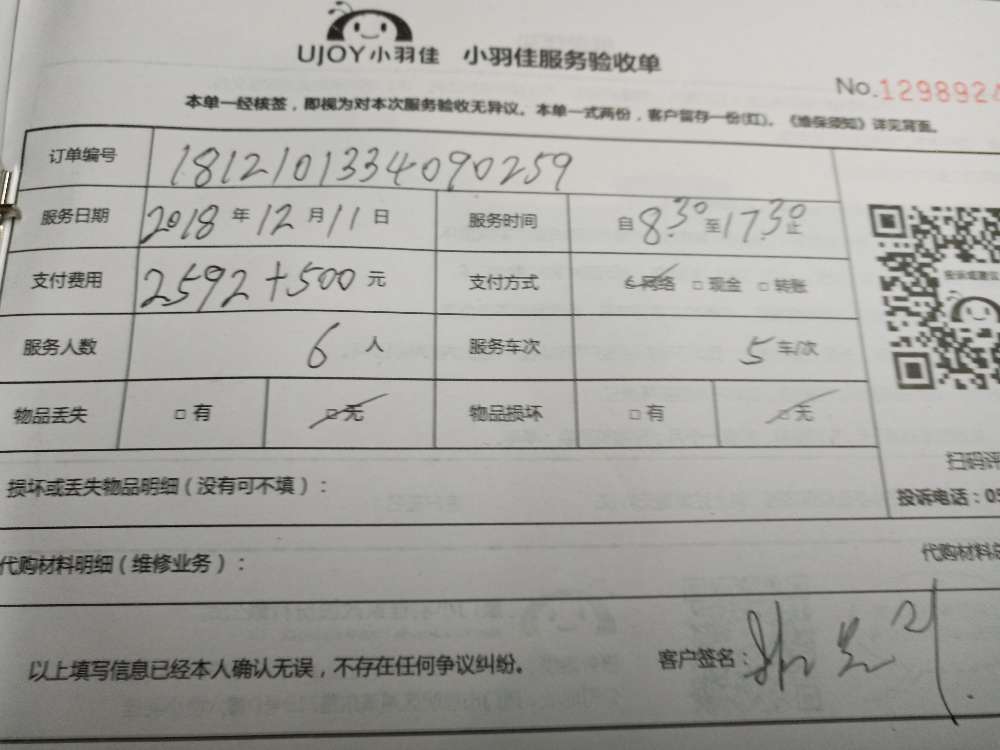 UJOY小羽佳 小羽佳服务验收单
No.1298924
本单一经核签，即视为对本次服务验收无异议。本单一式两份，客户留存一份(红)。《维保须知》详见背面。
订单编号 1812101334090259
服务日期 2018 年 12 月 11 日 服务时间 自 8:30 至 17:30 止
支付费用 2592+500 元 支付方式 网络 □ 现金 □ 转账
服务人数 6 人 服务车次 5 车/次
物品丢失 □ 有 □ 无 物品损坏 □ 有 □ 无
扫码评
损坏或丢失物品明细（没有可不填）：
投诉电话：05
代购材料明细（维修业务）： 代购材料总
以上填写信息已经本人确认无误，不存在任何争议纠纷。 客户签名：